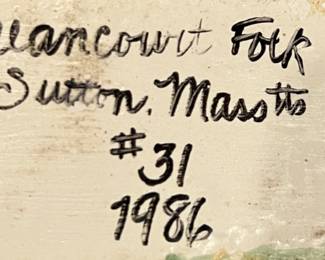 ancourt Folk
Sutton, Masstts
#31
1986